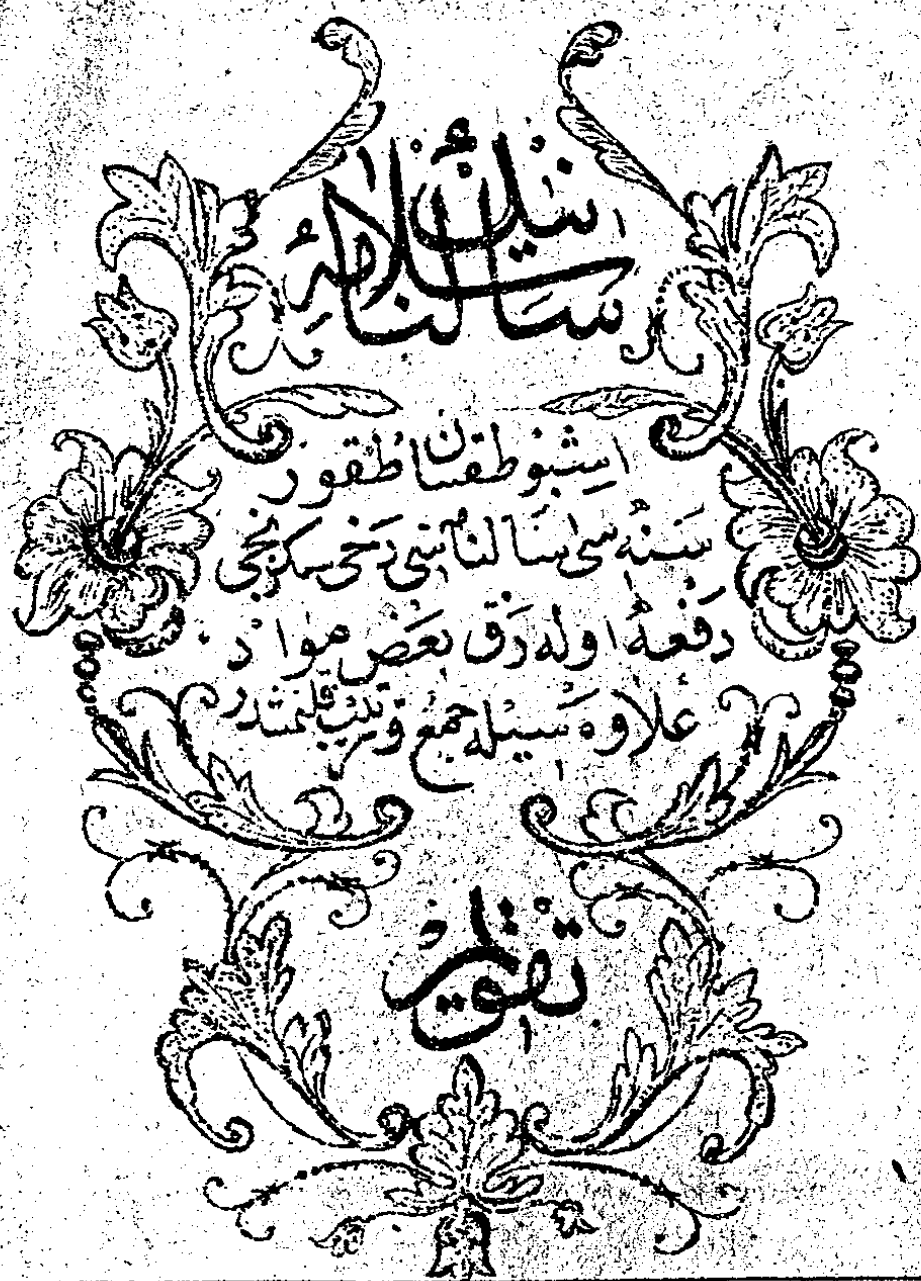 سالنامۀ سلانيك
اشبو طقسان طقوز
سنه سى سالنامه سى دخى سكزنجى
دفعه اوله رق بعض مواد
علاوه سيله جمع و ترتيب قلنمشدر
تقويم